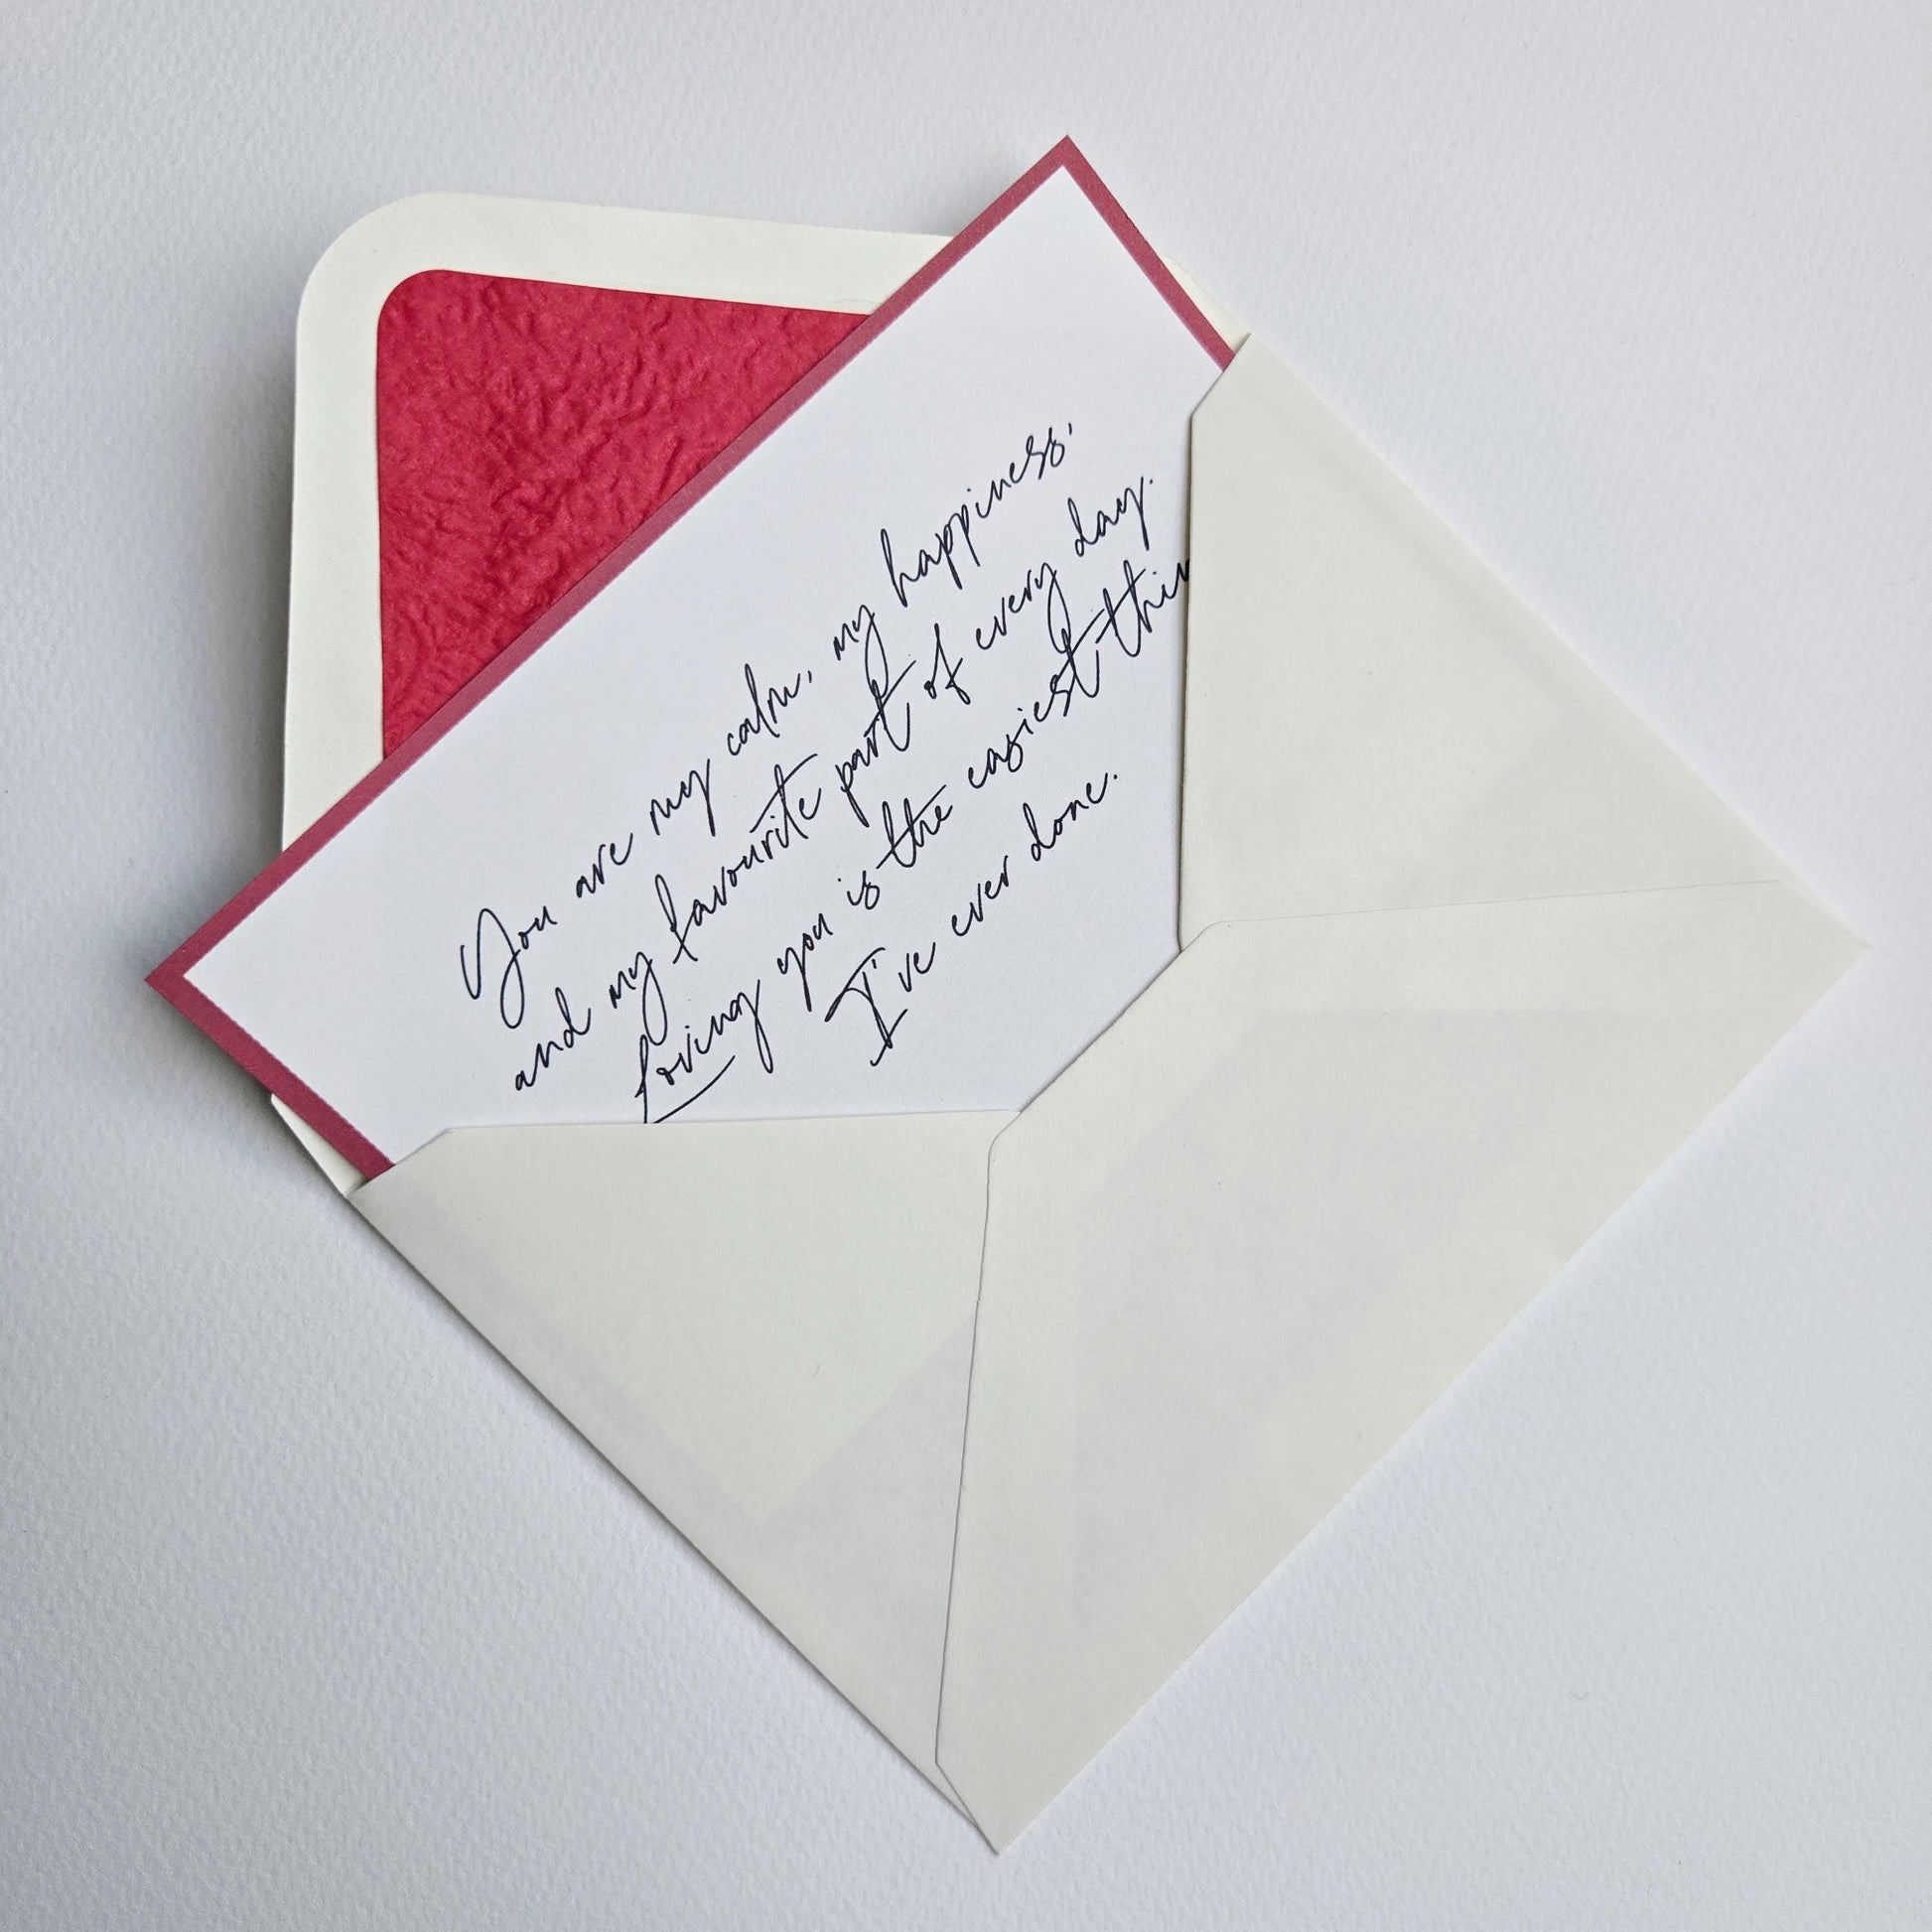 You are my calm, my happiness,
and my favourite part of every day.
Loving you is the easiest thin
I've ever done.